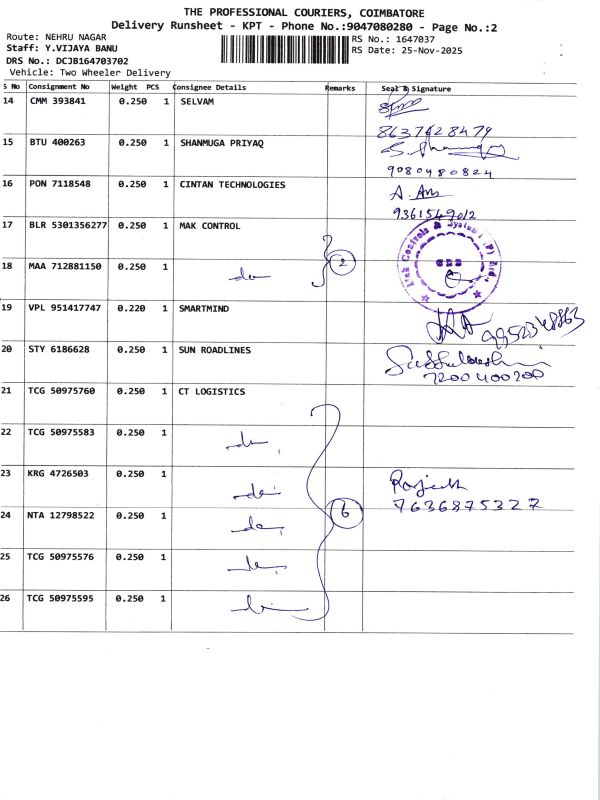 THE PROFESSIONAL COURIERS, COIMBATORE
Delivery Runsheet - KPT - Phone No.:9047080280 - Page No.:2
Route: NEHRU NAGAR
RS No.: 1647037
Staff: Y.VIJAYA BANU
RS Date: 25-Nov-2025
DRS No.: DCJB164703702
Vehicle: Two Wheeler Delivery
S No Consignment No Weight PCS Consignee Details Remarks Seal & Signature
14 CMM 393841 0.250 1 SELVAM
8637428479
15 BTU 400263 0.250 1 SHANMUGA PRIYAQ
9080480824
16 PON 7118548 0.250 1 CINTAN TECHNOLOGIES
9361549012
17 BLR 5301356277 0.250 1 MAK CONTROL
18 MAA 712881150 0.250 1 do 2
19 VPL 951417747 0.220 1 SMARTMIND
9952348863
20 STY 6186628 0.250 1 SUN ROADLINES
7200400200
21 TCG 50975760 0.250 1 CT LOGISTICS
22 TCG 50975583 0.250 1 do
23 KRG 4726503 0.250 1 do
7636875327
24 NTA 12798522 0.250 1 do 6
25 TCG 50975576 0.250 1 do
26 TCG 50975595 0.250 1 do